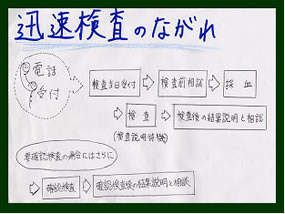 迅速検査のながれ
電話
受付
検査当日受付
検査前相談
採血
検査
検査後の結果説明と相談
(検査説明体験)
要確認検査の場合にはさらに
確認検査
確認検査後の結果説明と相談